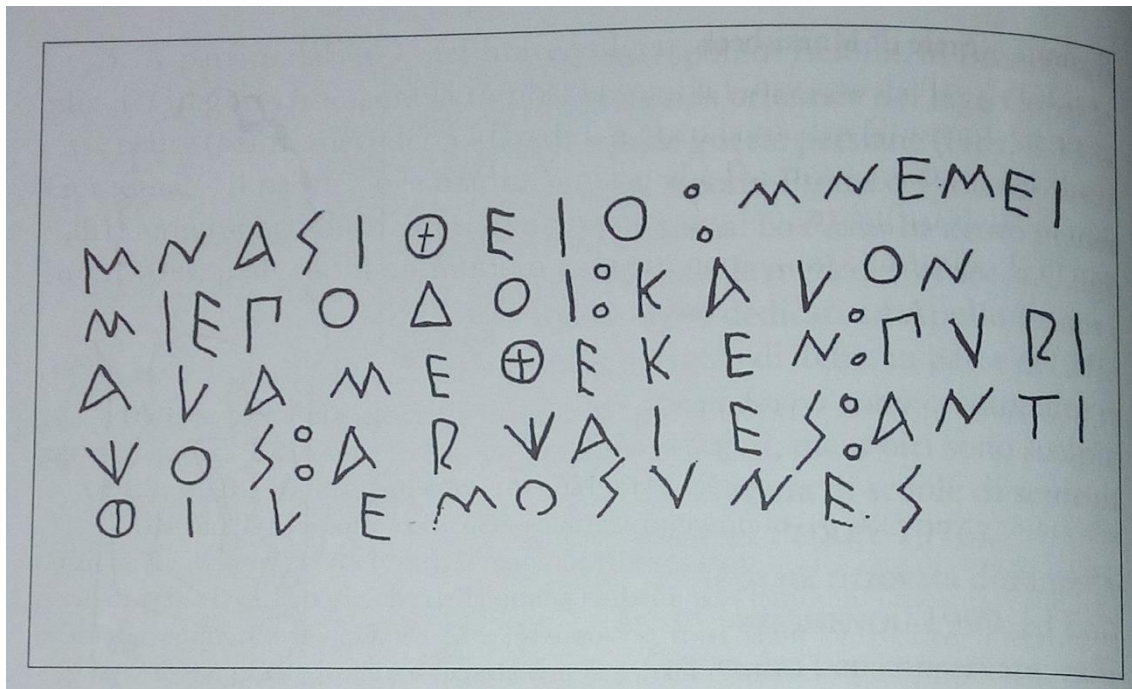 ΜΝΑΣΙΘΕΙΟ:ΜΝΕΜΕΙ
ΜΙΕΠΟΔΟΙ:ΚΑΛΟΝ
ΑΛΑΜΕΘΕΚΕΝ:ΠΥΡΙ
ΧΟΣ:ΑΡΧΑΙΕΣ:ΑΝΤΙ
ΦΙΛΕΜΟΣΥΝΕΣ